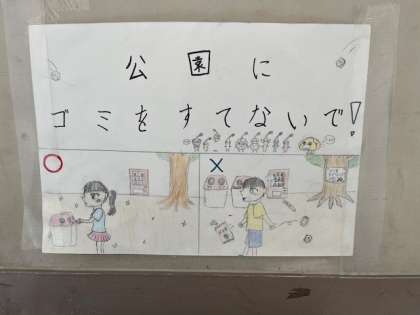 公園に
ゴミをすてないで!